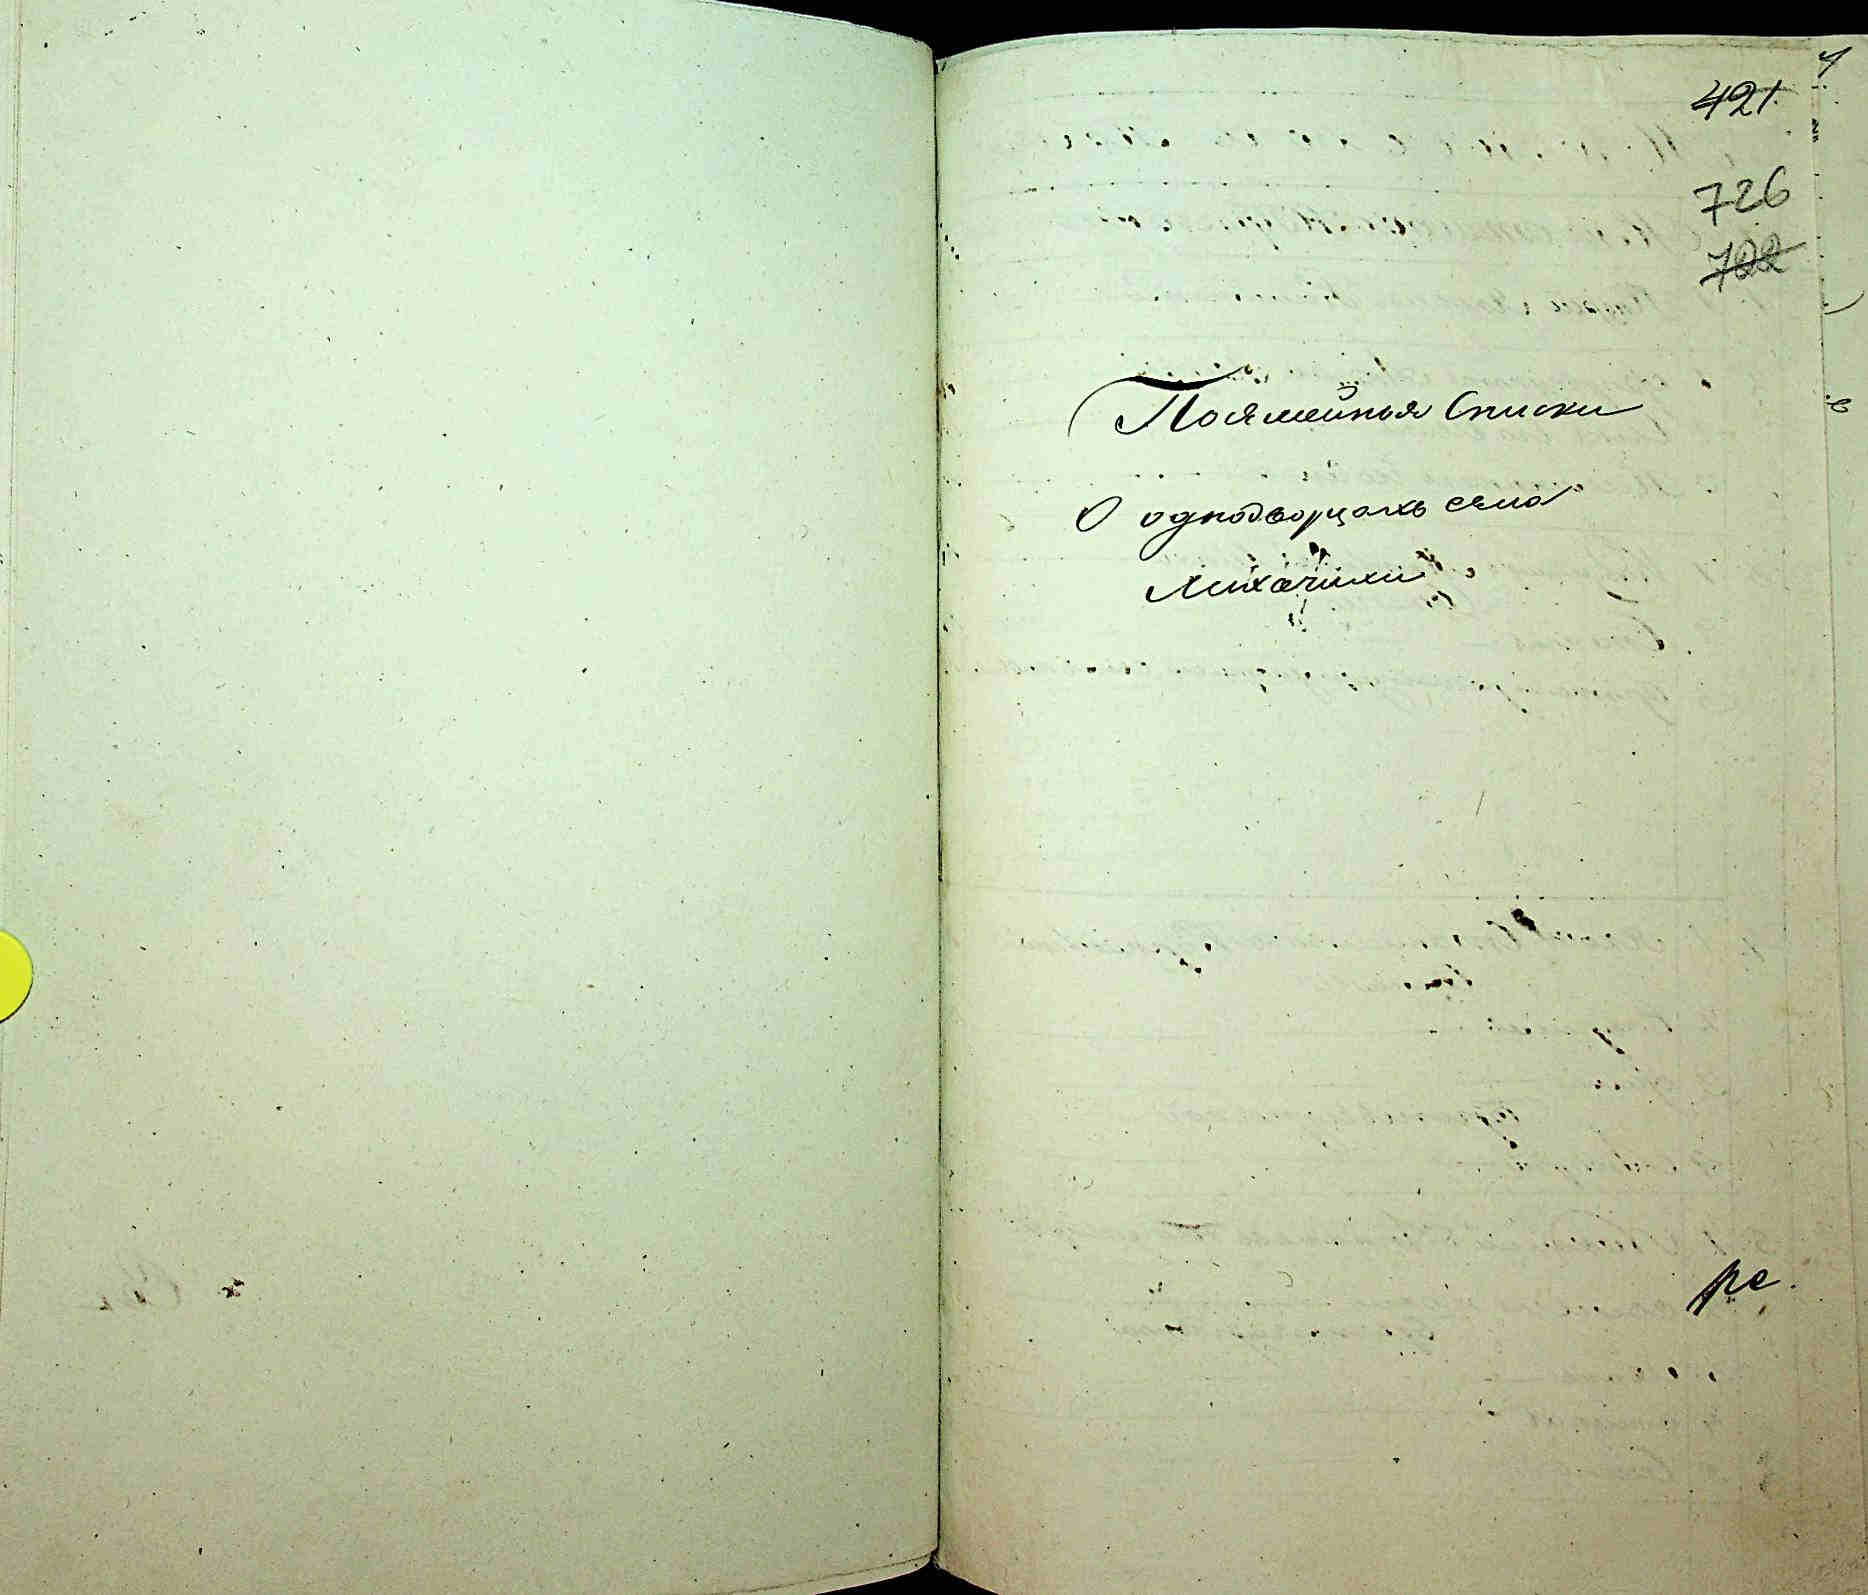 421
726
722
Посямейныя Списки
О однодворцахъ села
Михачихи
ре.